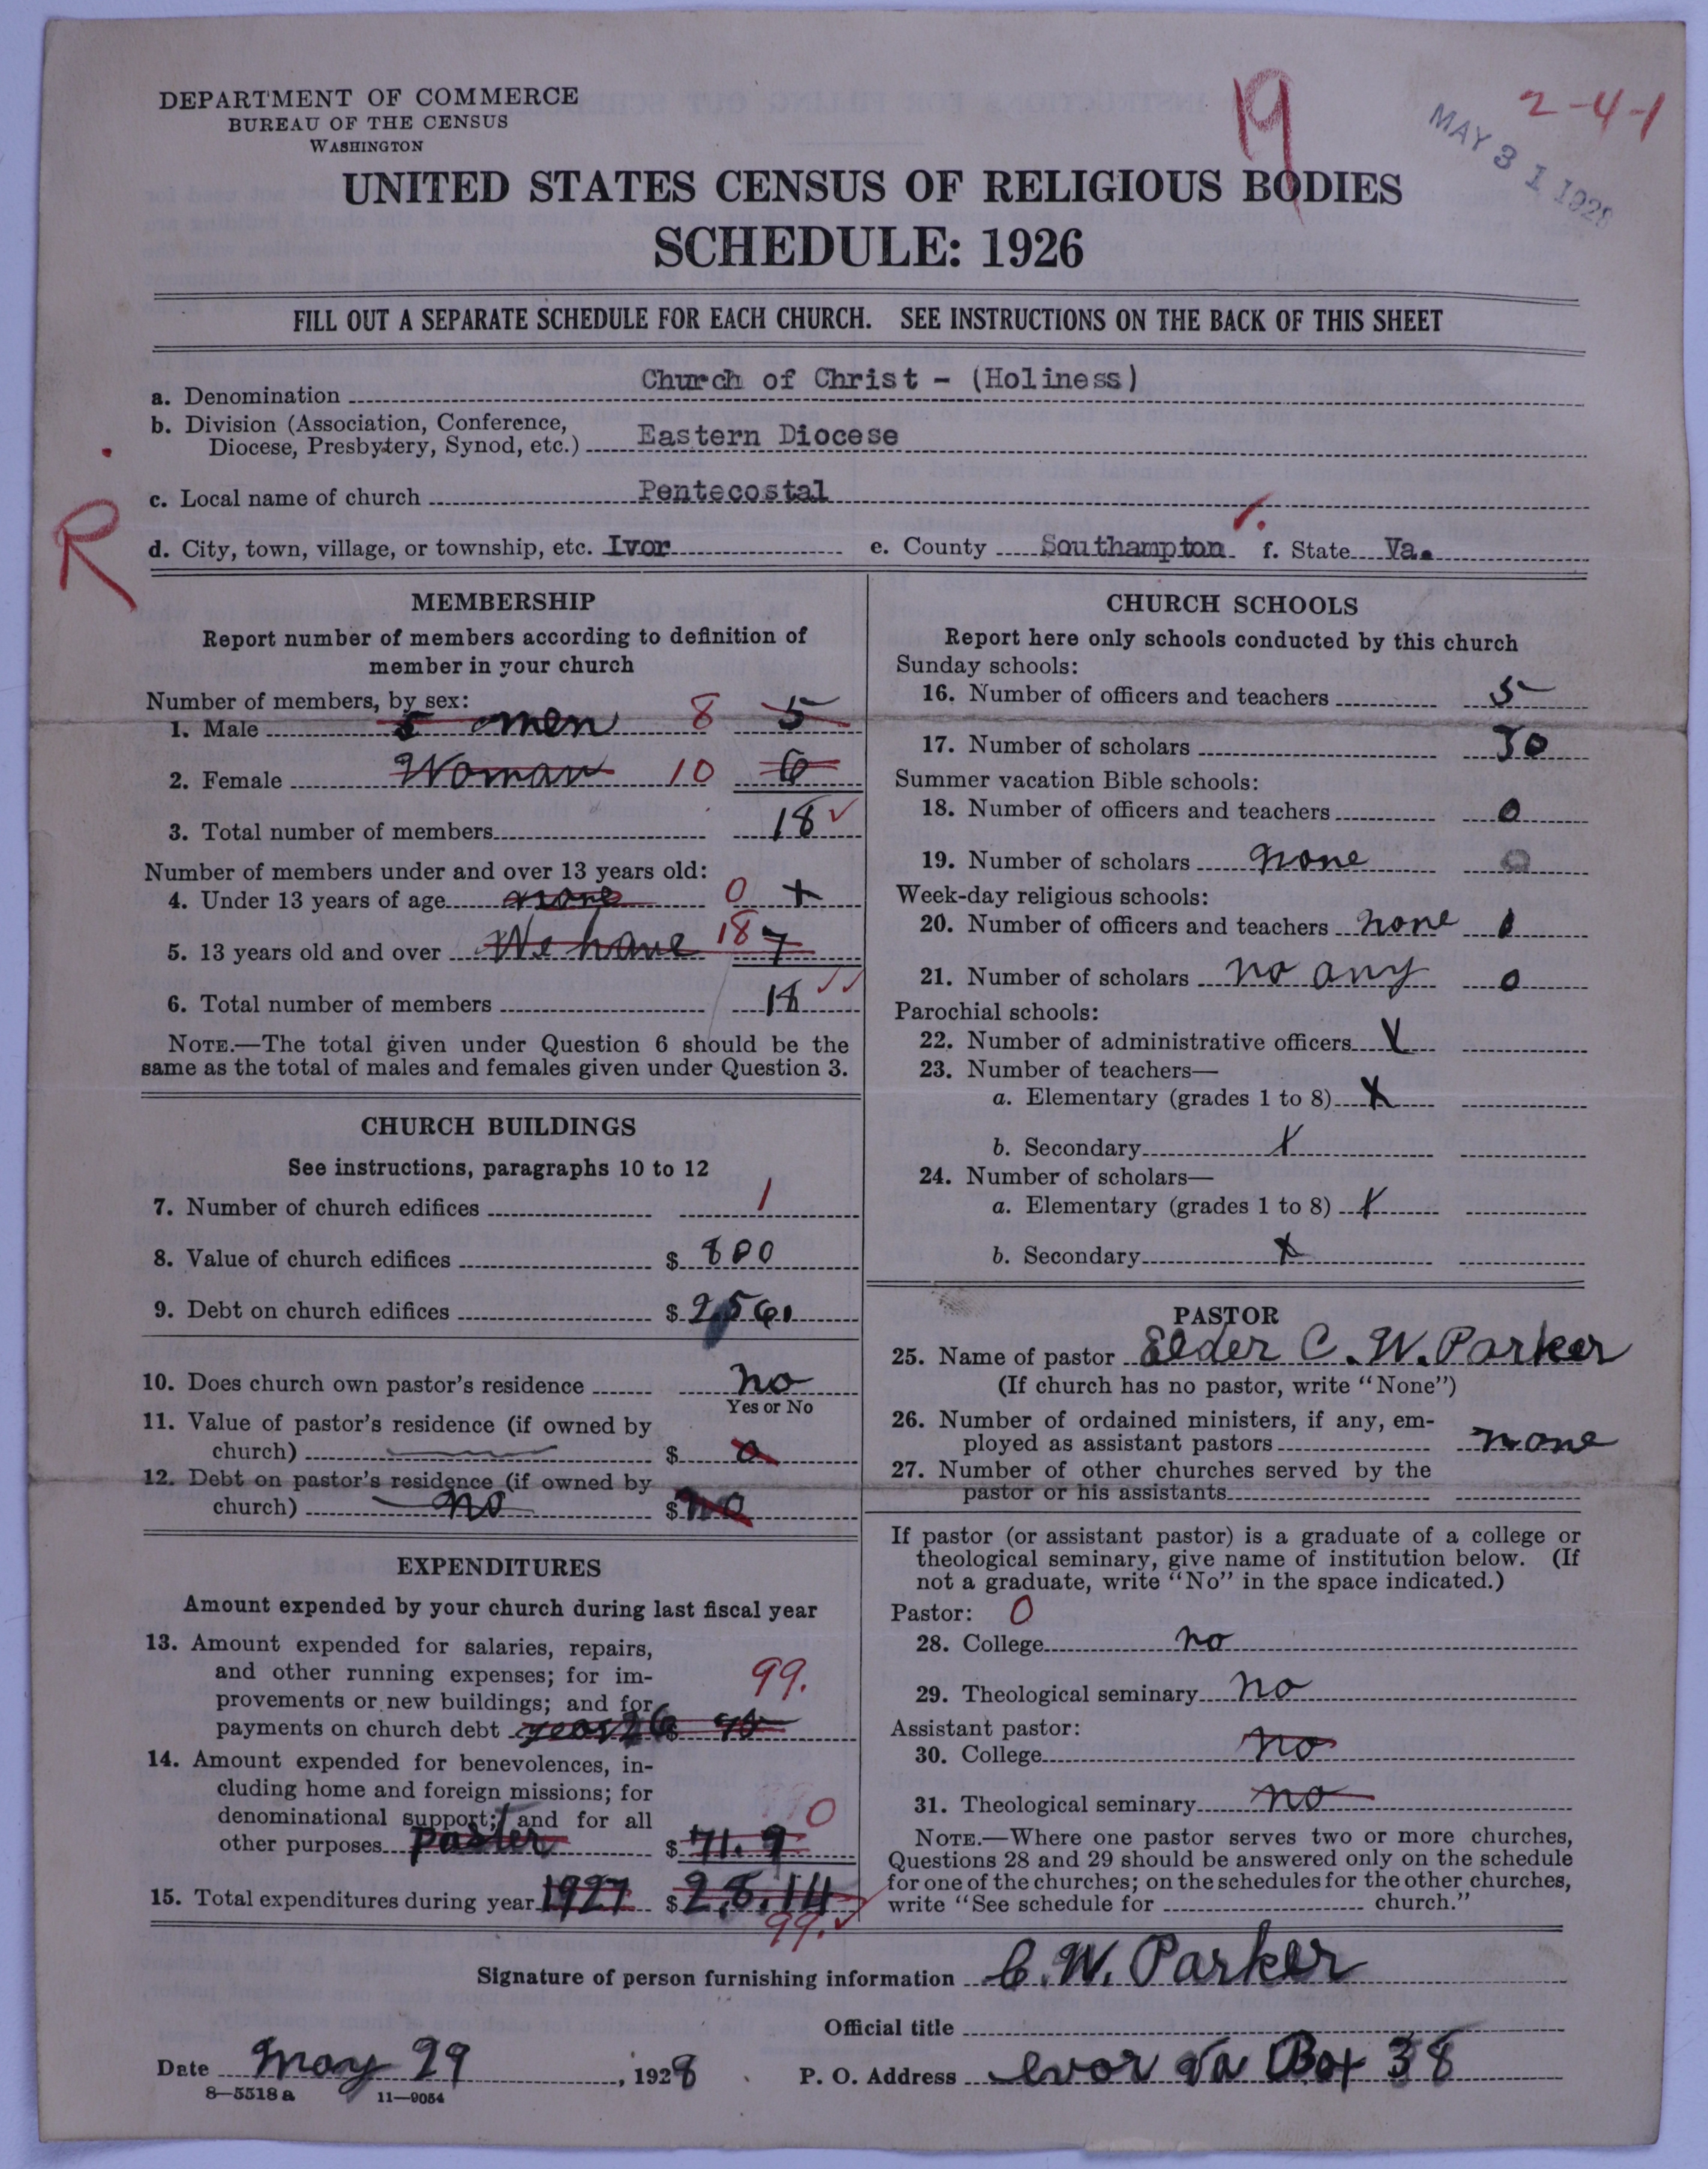 DEPARTMENT OF COMMERCE
BUREAU OF THE CENSUS
WASHINGTON
19
2-4-1
MAY 31 1928
UNITED STATES CENSUS OF RELIGIOUS BODIES
SCHEDULE: 1926
FILL OUT A SEPARATE SCHEDULE FOR EACH CHURCH. SEE INSTRUCTIONS ON THE BACK OF THIS SHEET
a. Denomination Church of Christ - (Holiness)
b. Division (Association, Conference,
Diocese, Presbytery, Synod, etc.) Eastern Diocese
c. Local name of church Pentecostal
R
d. City, town, village, or township, etc. Ivor e. County Southampton f. State Va.
MEMBERSHIP
Report number of members according to definition of
member in your church
Number of members, by sex:
1. Male 5 men 8 5
2. Female Woman 10 6
3. Total number of members 18 ✓
Number of members under and over 13 years old:
4. Under 13 years of age none 0 +
5. 13 years old and over We have 18 7
6. Total number of members 18 ✓✓
NOTE.—The total given under Question 6 should be the
same as the total of males and females given under Question 3.
CHURCH BUILDINGS
See instructions, paragraphs 10 to 12
7. Number of church edifices 1
8. Value of church edifices $ 800
9. Debt on church edifices $
10. Does church own pastor's residence no
Yes or No
11. Value of pastor's residence (if owned by
church) $ 0
12. Debt on pastor's residence (if owned by
church) no $ no
EXPENDITURES
Amount expended by your church during last fiscal year
13. Amount expended for salaries, repairs,
and other running expenses; for im-
provements or new buildings; and for
payments on church debt year 26 $
99.
14. Amount expended for benevolences, in-
cluding home and foreign missions; for
denominational support; and for all
other purposes paster $ 71.9
0
15. Total expenditures during year 1927 $ 28.14
99. ✓
CHURCH SCHOOLS
Report here only schools conducted by this church
Sunday schools:
16. Number of officers and teachers 5
17. Number of scholars 30
Summer vacation Bible schools:
18. Number of officers and teachers 0
19. Number of scholars none 0
Week-day religious schools:
20. Number of officers and teachers none 0
21. Number of scholars no any 0
Parochial schools:
22. Number of administrative officers X
23. Number of teachers—
a. Elementary (grades 1 to 8) X
b. Secondary X
24. Number of scholars—
a. Elementary (grades 1 to 8) X
b. Secondary X
PASTOR
25. Name of pastor Elder C. W. Parker
(If church has no pastor, write "None")
26. Number of ordained ministers, if any, em-
ployed as assistant pastors none
27. Number of other churches served by the
pastor or his assistants
If pastor (or assistant pastor) is a graduate of a college or
theological seminary, give name of institution below. (If
not a graduate, write "No" in the space indicated.)
Pastor: 0
28. College no
29. Theological seminary no
Assistant pastor:
30. College no
31. Theological seminary no
NOTE.—Where one pastor serves two or more churches,
Questions 28 and 29 should be answered only on the schedule
for one of the churches; on the schedules for the other churches,
write "See schedule for church."
Signature of person furnishing information C. W. Parker
Official title
Date May 29, 1928 P. O. Address evor va Box 38
8—5518 a 11—9054